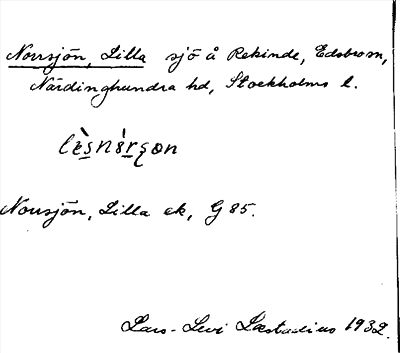 Norrsjön, Lilla sjö å Rekinde, Edsbrom,
Närdinghundra hd, Stockholms l.
lèsnórşon
Norrsjön, Lilla ek, G 85.
Lars-Levi Læstadius 1932.